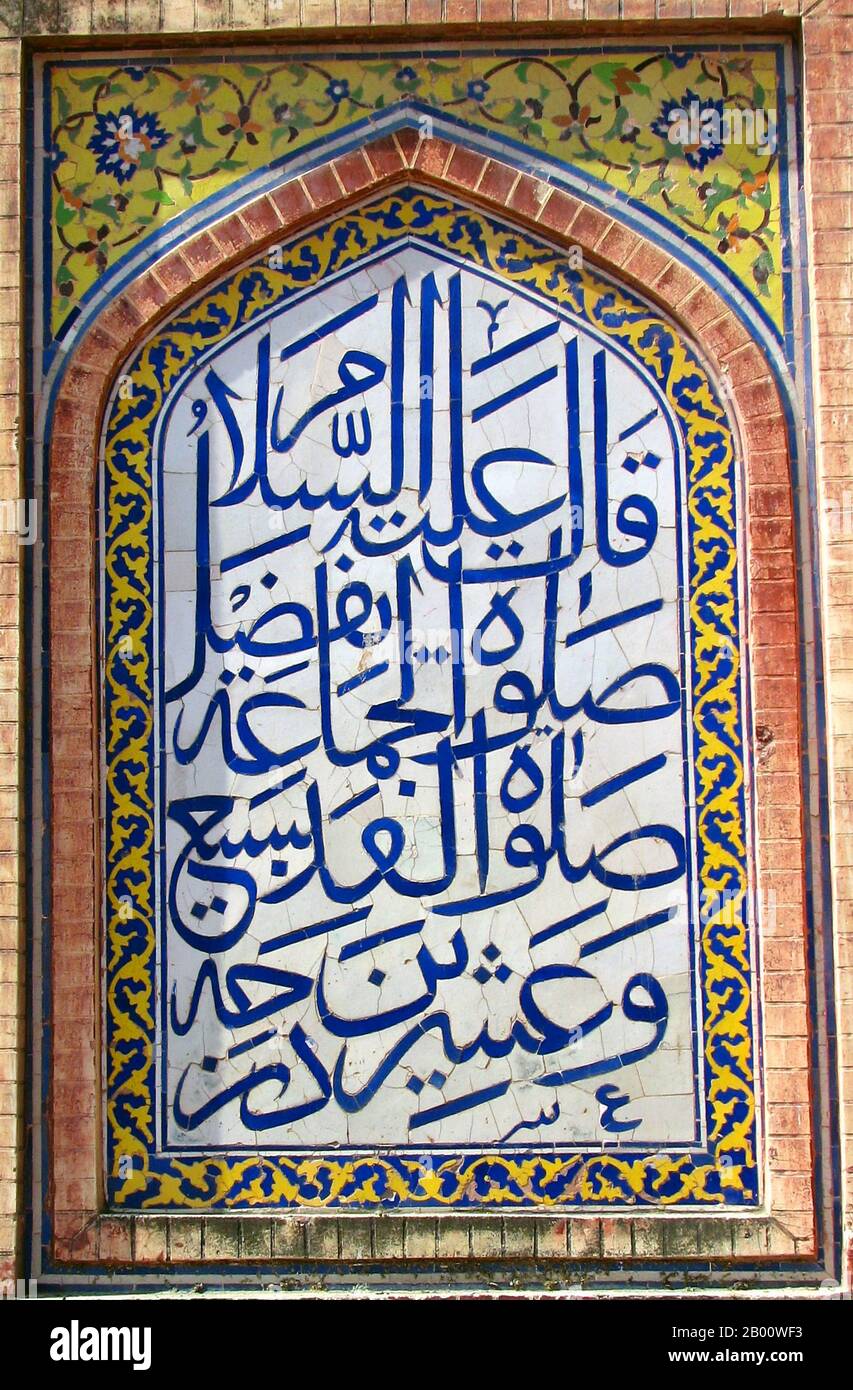 قال عليه السلام
صلوة الجماعة بفضل
صلوة الفذ بسبع
وعشرين درجة
alamy
Image ID: B00WF3
www.alamy.com